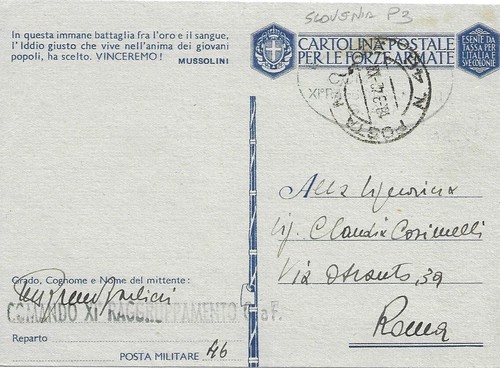 SLOVENIA P3
In questa immane battaglia fra l'oro e il sangue,
l'Iddio giusto che vive nell'anima dei giovani
popoli, ha scelto. VINCEREMO!
MUSSOLINI
CARTOLINA POSTALE
PER LE FORZE ARMATE
ESENTE DA
TASSA PER
L'ITALIA E
SUE COLONIE
POSTA
N
Alla Signorina
Sig. Claudia Cosimelli
Via Otranto, 39
Roma
Grado, Cognome e Nome del mittente:
COMANDO XI° RAGGRUPPAMENTO G. a F.
Reparto
POSTA MILITARE 46